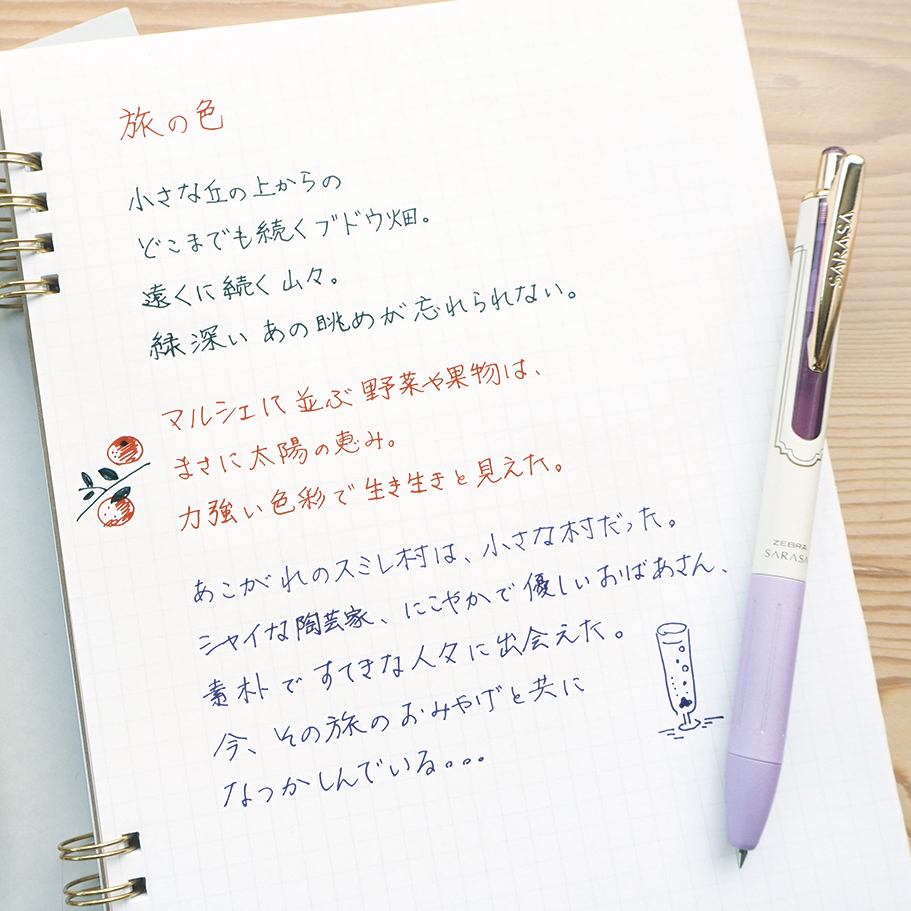 旅の色
小さな丘の上からの
どこまでも続くブドウ畑。
遠くに続く山々。
緑深いあの眺めが忘れられない。
マルシェに並ぶ野菜や果物は、
まさに太陽の恵み。
力強い色彩で生き生きと見えた。
あこがれのスミレ村は、小さな村だった。
シャイな陶芸家、にこやかで優しいおばあさん、
素朴ですてきな人々に出会えた。
今、その旅のおみやげと共に
なつかしんでいる。。。
SARASA
ZEBRA
SARASA